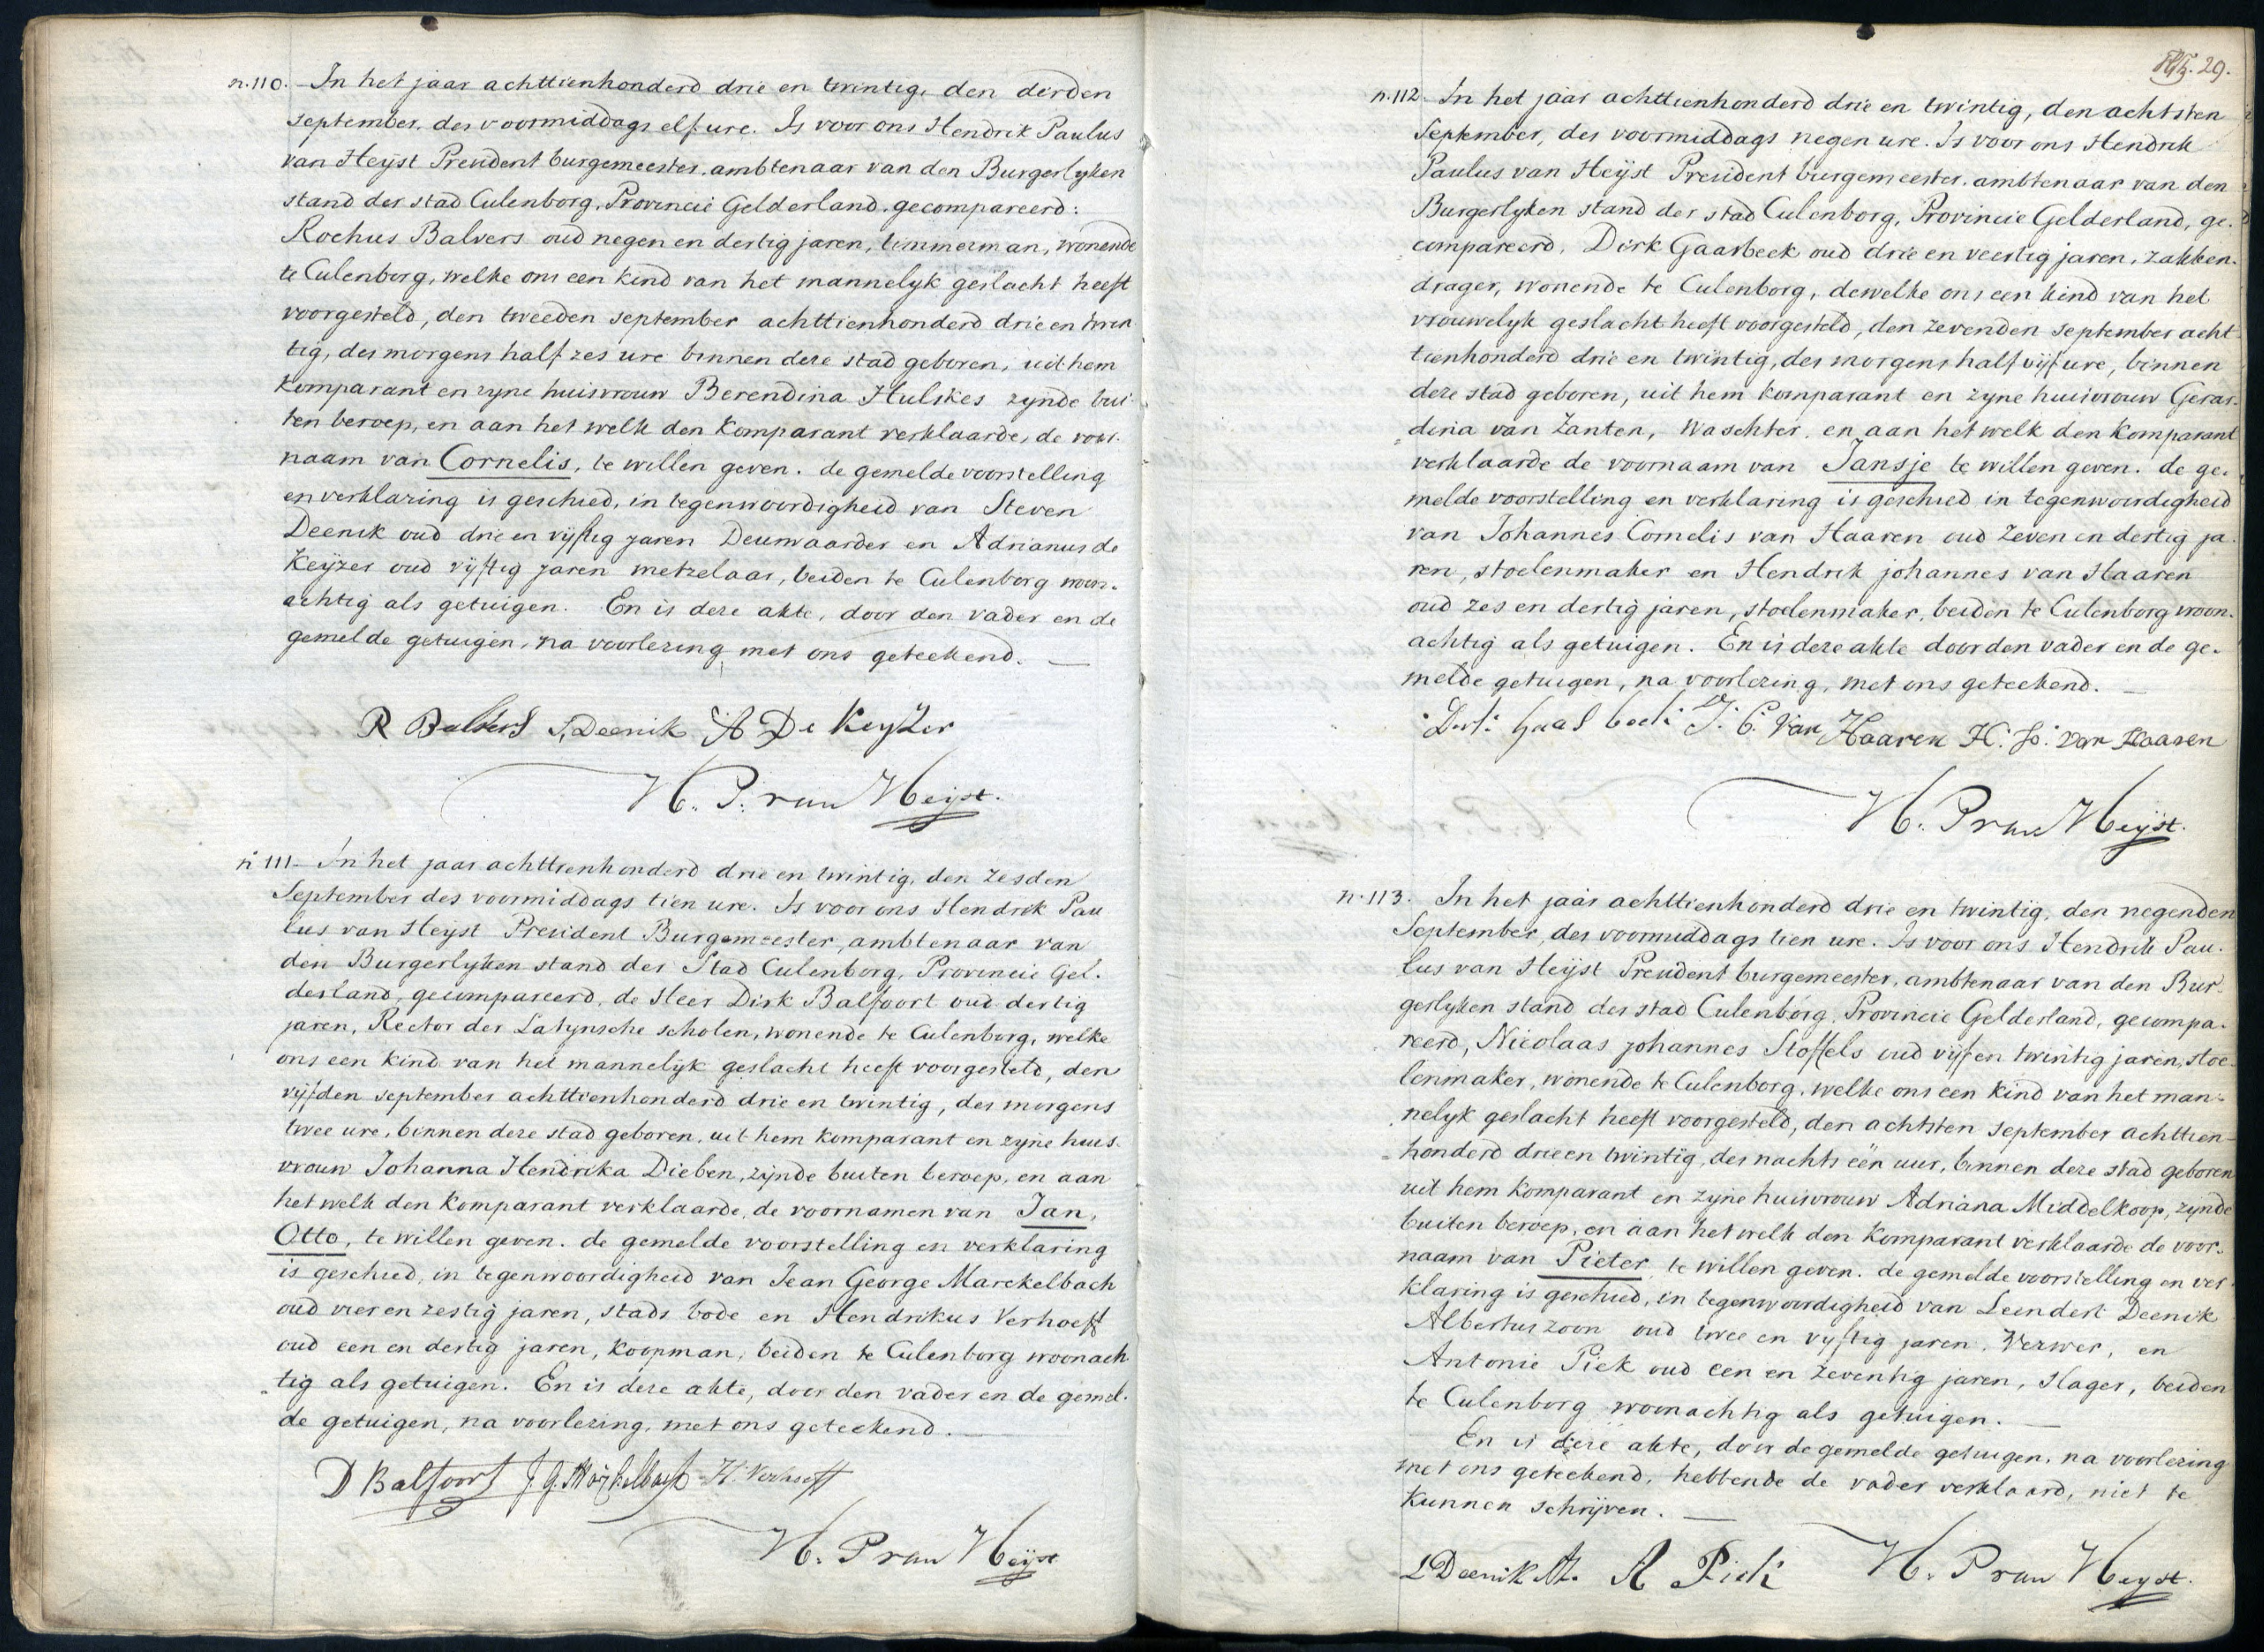 n. 110. In het jaar achttienhonderd drie en twintig, den derden
september, des voormiddags elf ure. Is voor ons Hendrik Paulus
van Heijst President burgemeester, ambtenaar van den Burgerlyken
stand der stad Culenborg, Provincie Gelderland, gecompareerd:
Rochus Balvers oud negen en dertig jaren, timmerman, wonende
te Culenborg, welke ons een kind van het mannelyk geslacht heeft
voorgesteld, den tweeden september achttienhonderd drie en twin
tig, des morgens half zes ure binnen deze stad geboren, uit hem
komparant en zyne huisvrouw Berendina Hulskes zynde bui
ten beroep, en aan het welk den komparant verklaarde, de voor-
naam van Cornelis, te willen geven. de gemelde voorstelling
en verklaring is geschied, in tegenwoordigheid van Steven
Deenik oud drie en vijftig jaren Deurwaarder en Adrianus de
Keijzer oud vijftig jaren metzelaar, beiden te Culenborg woon-
achtig als getuigen. En is deze akte, door den vader en de
gemelde getuigen, na voorlezing met ons geteekend.
R Balvers S, Deenik A De Keyzer
H. P. van Heijst.
n 111- In het jaar achttienhonderd drie en twintig, den zesden
September des voormiddags tien ure. Is voor ons Hendrik Pau
lus van Heijst President Burgemeester, ambtenaar van
den Burgerlyken stand der Stad Culenborg, Provincie Gel-
derland, gecompareerd, de Heer Dirk Balfoort oud dertig
jaren, Rector der Latynsche scholen, wonende te Culenborg, welke
ons een kind van het mannelyk geslacht heeft voorgesteld, den
vijfden september achttienhonderd drie en twintig, des morgens
twee ure, binnen deze stad geboren, uit hem komparant en zyne huis-
vrouw Johanna Hendrika Dieben, zijnde buiten beroep, en aan
het welk den komparant verklaarde, de voornamen van Jan,
Otto, te willen geven. de gemelde voorstelling en verklaring
is geschied, in tegenwoordigheid van Jean George Marckelbach
oud vier en zestig jaren, stads bode en Hendrikus Verhoeff
oud een en dertig jaren, koopman, beiden te Culenborg woonach
tig als getuigen. En is deze akte, door den vader en de gemel-
de getuigen, na voorlezing, met ons geteekend.
D Balfoort J. G. Marckelbach H. Verhoeff
H. P van Heijst
29.
n. 112. In het jaar achttienhonderd drie en twintig, den achtsten
September, des voormiddags negen ure. Is voor ons Hendrik
Paulus van Heijst President burgemeester, ambtenaar van den
Burgerlyken stand der stad Culenborg, Provincie Gelderland, ge-
compareerd, Dirk Gaasbeek oud drie en veertig jaren, zakken-
drager, wonende te Culenborg, dewelke ons een kind van het
vrouwelyk geslacht heeft voorgesteld, den zevenden september acht
tienhonderd drie en twintig, des morgens half vijf ure, binnen
deze stad geboren, uit hem komparant en zyne huisvrouw Gerar-
dina van Zanten, Waschter, en aan het welk den komparant
verklaarde de voornaam van Jansje te willen geven. de ge-
melde voorstelling en verklaring is geschied in tegenwoordigheid
van Johannes Cornelis van Haaren oud zeven en dertig ja-
ren, stoelenmaker en Hendrik johannes van Haaren
oud zes en dertig jaren, stoelenmaker, beiden te Culenborg woon-
achtig als getuigen. En is deze akte door den vader en de ge-
melde getuigen, na voorlezing, met ons geteekend.
Dirk Gaasbeek J. C. Van Haaren H. Jo. van Haaren
H. P van Heijst.
n. 113. In het jaar achttienhonderd drie en twintig, den negenden
September, des voormiddags tien ure. Is voor ons Hendrik Pau-
lus van Heijst President burgemeester, ambtenaar van den Bur-
gerlyken stand der stad Culenborg, Provincie Gelderland, gecompa-
reerd, Nicolaas Johannes Stoffels oud vijf en twintig jaren, stoe-
lenmaker, wonende te Culenborg, welke ons een kind van het man-
nelyk geslacht heeft voorgesteld, den achtsten september achttien-
honderd drie en twintig, des nachts één uur, binnen deze stad geboren
uit hem komparant en zyne huisvrouw Adriana Middelkoop, zynde
buiten beroep, en aan het welk den komparant verklaarde de voor-
naam van Pieter te willen geven. de gemelde voorstelling en ver-
klaring is geschied, in tegenwoordigheid van Leendert Deenik
Albertus zoon oud twee en vyftig jaren, Verwer, en
Antonie Piek oud een en zeventig jaren, slager, beiden
te Culenborg woonachtig als getuigen.
En is deze akte, door de gemelde getuigen, na voorlezing
met ons geteekend, hebbende de vader verklaard, niet te
kunnen schrijven.
L Deenik Az. A Piek H. P van Heyst.